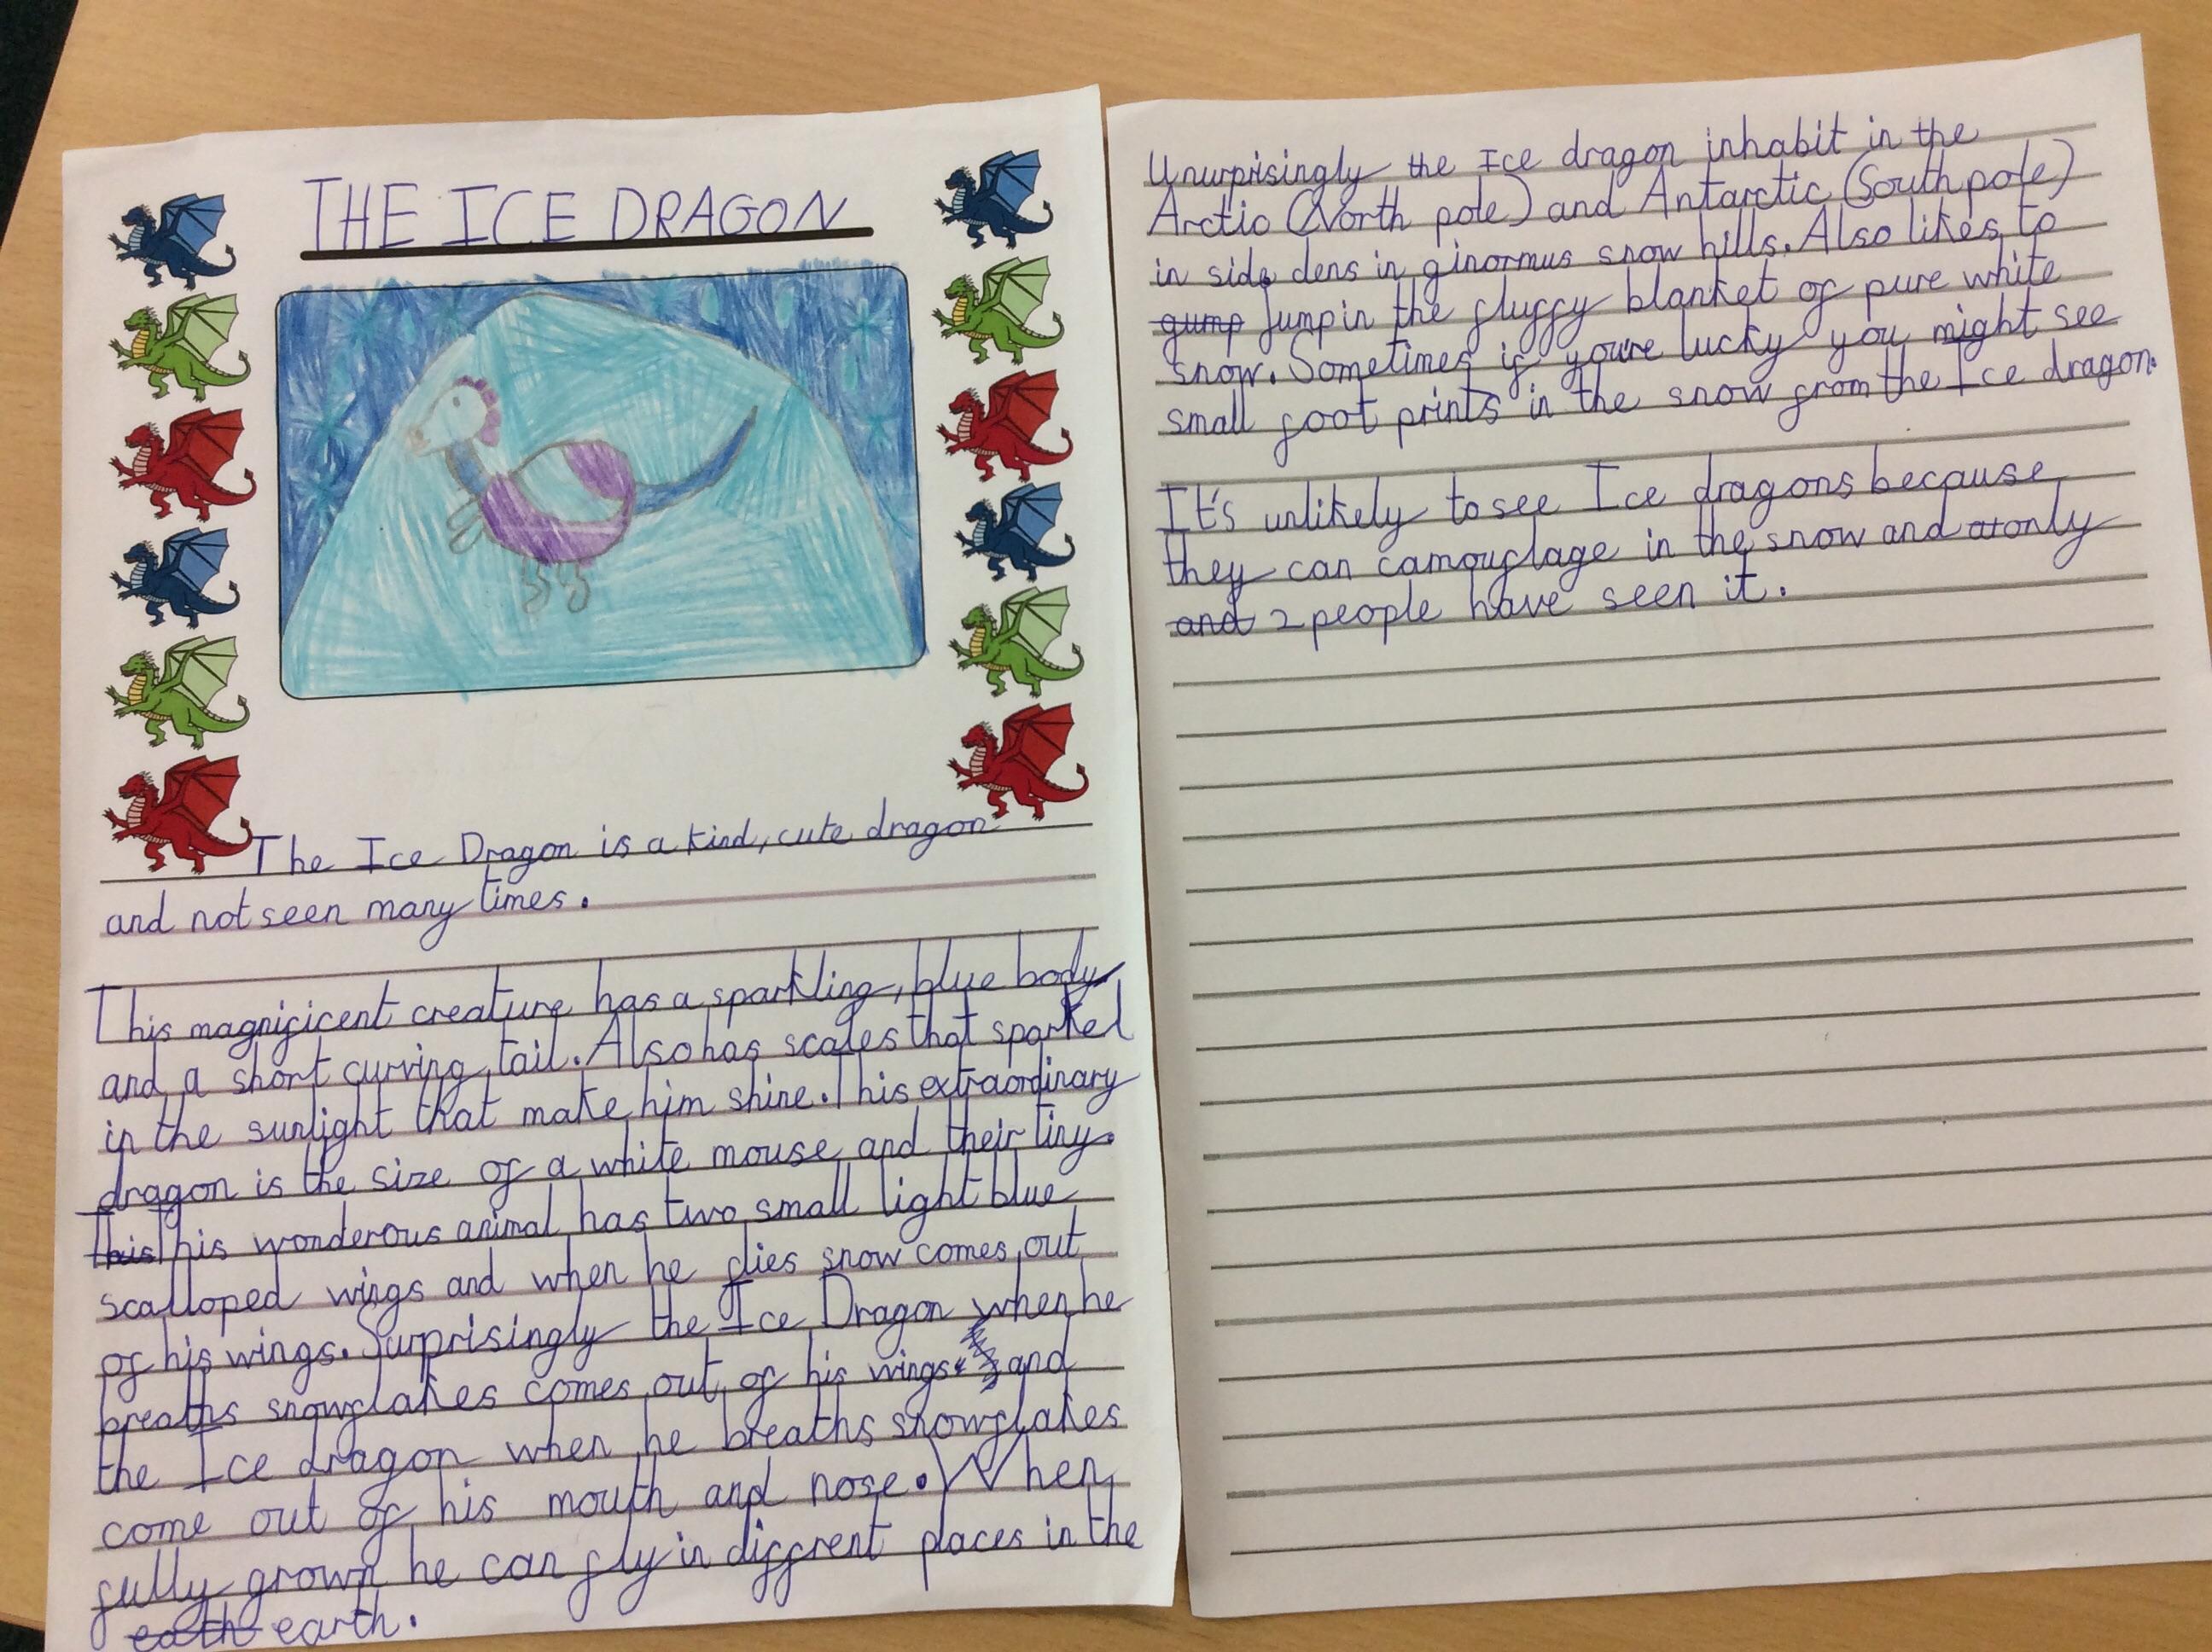 THE ICE DRAGON
The Ice Dragon is a kind, cute dragon
and not seen many times.
This magnificent creature has a sparkling, blue body
and a short curving tail. Also has scales that sparkel
in the sunlight that make him shine. This extraordinary
dragon is the size of a white mouse and their tiny.
this This wonderous animal has two small light blue
scalloped wings and when he flies snow comes out
of his wings. Surprisingly the Ice Dragon when he
breaths snowflakes comes out of his wings and
the Ice dragon when he breaths snowflakes
come out of his mouth and nose. When
fully grown he can fly in diffrent places in the
eath earth.
Unurprisingly the Ice dragon inhabit in the
Arctic (North pole) and Antarctic (South pole)
in side dens in ginormus snow hills. Also likes to
gump jump in the fluffy blanket of pure white
snow. Sometimes if you're lucky you might see
small foot prints in the snow from the Ice dragon.
It's unlikely to see Ice dragons because
they can camouflage in the snow and only
and 2 people have seen it.